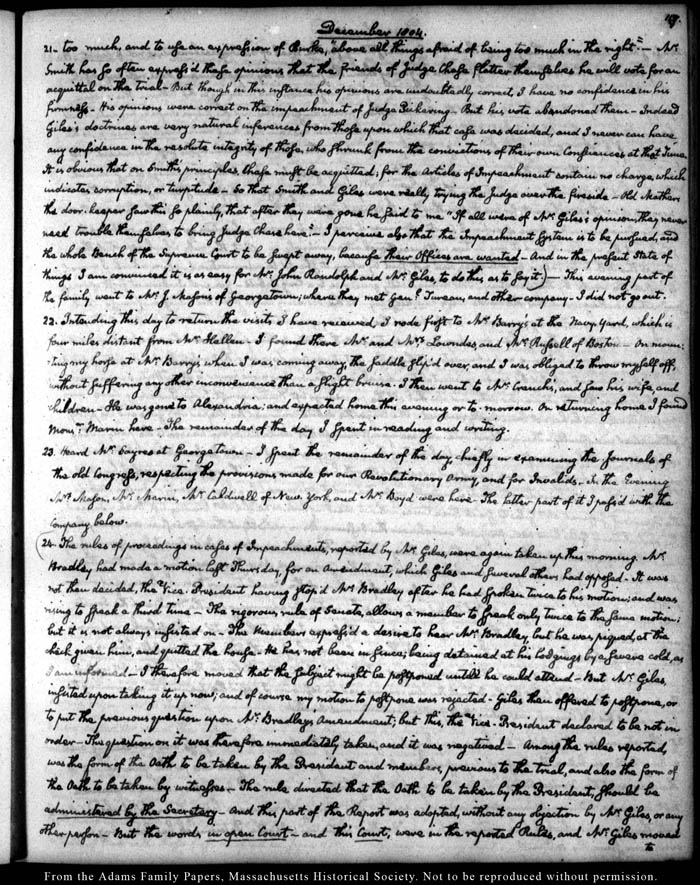 December 1804.
21 - too much, and to use an expression of Burke, "above all things afraid of being too much in the right" - Mr
Smith has so often express'd these opinions that the friends of Judge Chase flatter themselves he will vote for an
acquittal on the trial - But though in this instance his opinions are undoubtedly correct, I have no confidence in his
firmness - His opinions were correct on the impeachment of Judge Pickering - But his vote abandoned them - Indeed
Giles's doctrines are very natural inferences from those upon which that case was decided, and I never can have
any confidence in the resolute integrity of those, who shrunk from the convictions of their own Consciences at that Time.
It is obvious that on Smith's principles, Chase must be acquitted; for the Articles of Impeachment contain no charge, which
indicates corruption, or turpitude - So that Smith and Giles were really trying the Judge over the fireside - Old Mathers
the door-keeper saw this so plainly, that after they were gone he said to me "If all were of Mr Giles's opinion, they never
need trouble themselves to bring Judge Chase here." - I perceive also that the Impeachment System is to be pursued, and
the whole Bench of the Supreme Court to be swept away, because their Offices are wanted - And in the present State of
things I am convinced it is as easy for Mr. John Randolph and Mr. Giles, to do this as to say it.) - This evening part of
the family went to Mr. J. Mason's of Georgetown; where they met Genl. Tureau, and other company - I did not go out.
22. Intending this day to return the visits I have received, I rode first to Mr Barry's at the Navy-Yard, which is
four miles distant from Mr Hellen - I found there Mr and Mrs Lowndes, and Mr Russell of Boston - On moun:
:ting my horse at Mr Barry's, when I was coming away, the saddle slip'd over, and I was obliged to throw myself off,
without suffering any other inconvenience than a slight bruise. I then went to Mr. Cranch's, and saw his wife, and
children - He was gone to Alexandria; and expected home this evening or to-morrow. On returning home I found
Monr. Marin here - The remainder of the day I spent in reading and writing.
23. Heard Mr Sayres at Georgetown - I spent the remainder of the day, chiefly in examining the Journals of
the old Congress, respecting the provisions made for our Revolutionary Army, and for Invalids - In the Evening
Mr. Mason, Mr. Marin, Mr Caldwell of New York, and Mr Boyd were here. The latter part of it I pass'd with the
Company below.
24. The rules of proceedings in cases of Impeachments, reported by Mr. Giles, were again taken up this morning. Mr
Bradley had made a motion last Thursday, for an Amendment, which Giles and several others had opposed - It was
not then decided, the Vice-President having stop'd Mr Bradley after he had spoken twice to his motion; and was
rising to speak a third time - The rigorous rule of Senate, allows a member to speak only twice to the same motion;
but it is not always insisted on - The Members express'd a desire to hear Mr. Bradley, but he was piqued, at the
check given him, and quitted the house - He has not been in since; being detained at his lodgings by a severe cold, as
I am informed - I therefore moved that the subject might be postponed untill he could attend - But Mr Giles,
insisted upon taking it up now; and of course my motion to postpone was rejected - Giles then offered to postpone, or
to put the previous question upon Mr. Bradley's Amendment; but this, the Vice-President declared to be not in
order - The question on it was therefore immediately taken, and it was negatived - Among the rules reported,
was the form of the Oath to be taken by the President and members, previous to the trial, and also the form of
the Oath to be taken by witnesses - The rule directed that the Oath to be taken by the President, should be
administered by the Secretary - And this part of the Report was adopted, without any objection by Mr. Giles, or any
other person - But the words in open Court - and this Court, were in the reported Rules, and Mr Giles moved
to
From the Adams Family Papers, Massachusetts Historical Society. Not to be reproduced without permission.